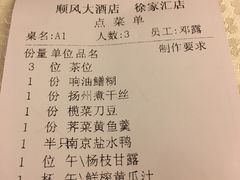 顺风大酒店 徐家汇店
点菜单
桌名:A1 人数:3 员工:邓露
份量 单位 品名 制作要求
3 位 茶位
1 份 响油鳝糊
1 份 扬州煮干丝
1 份 榄菜刀豆
1 份 荠菜黄鱼羹
1 半只 南京盐水鸭
1 位 午\杨枝甘露
1 杯 午\鲜榨黄瓜汁